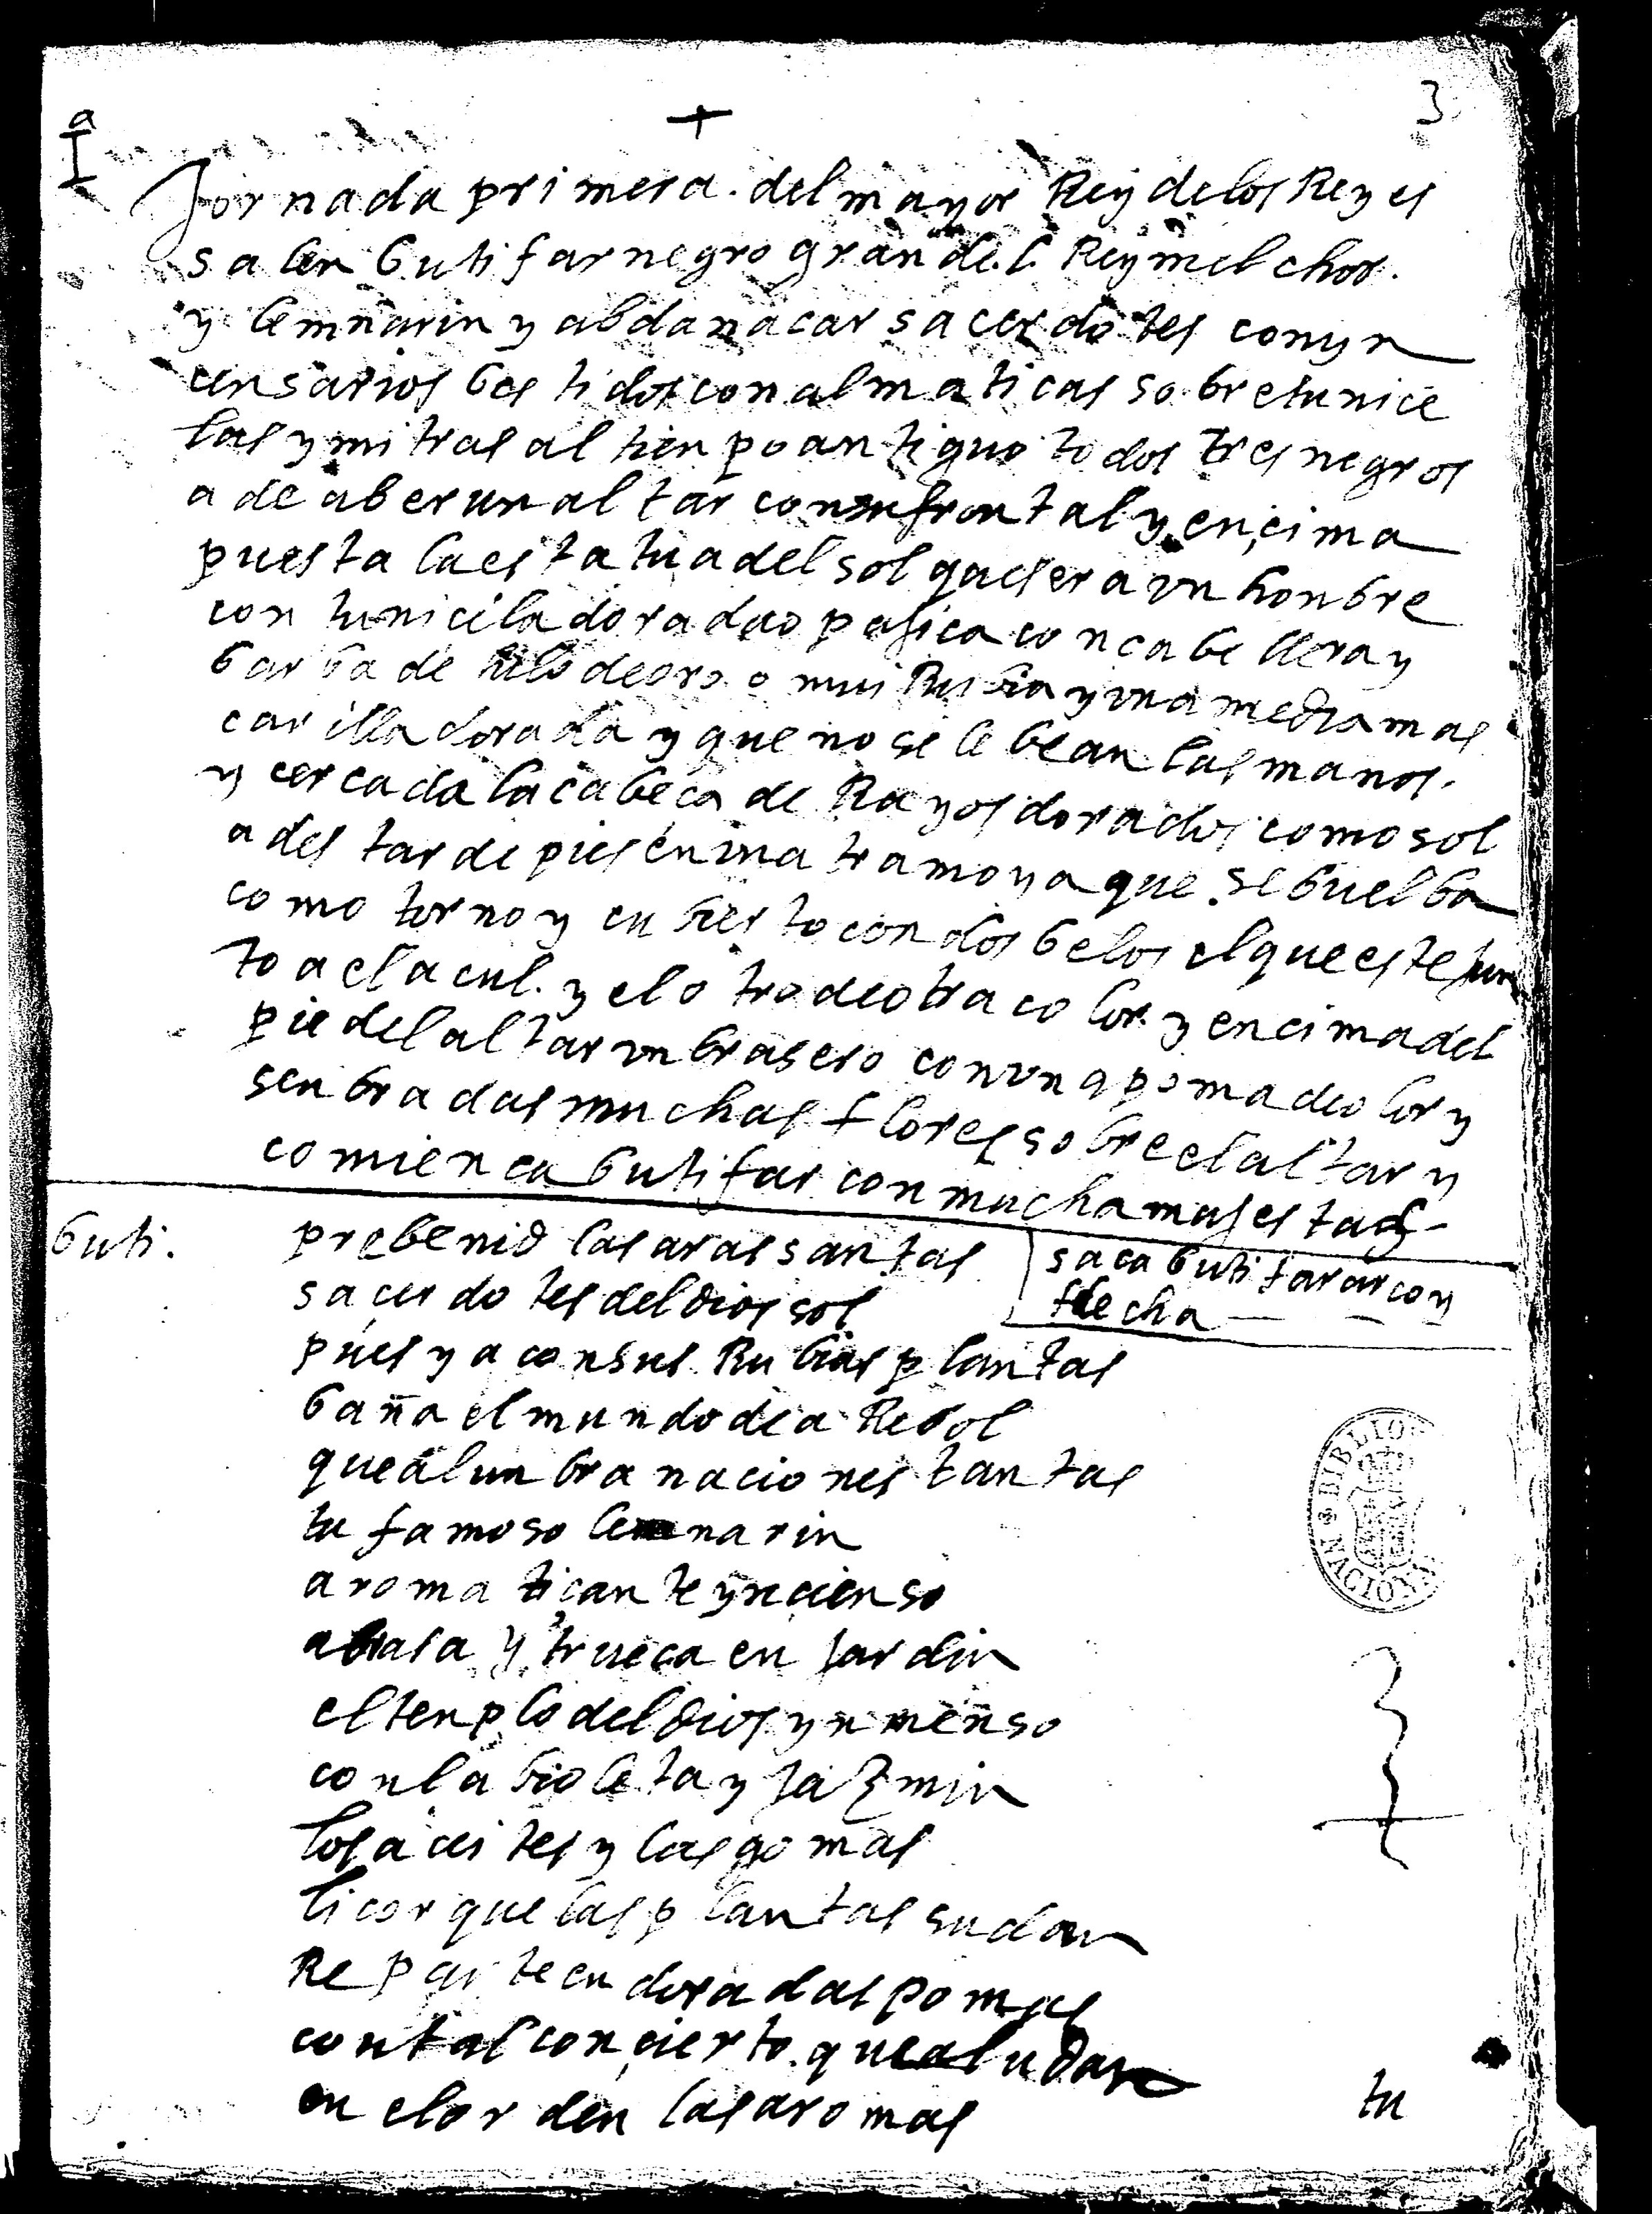 +
3
Iª
Jornada primera. del mayor Rey de los Reyes
salen butifar negro grande. l. Rey melchor.
y lemnarin y abdanacar sacerdotes con yn
censarios bestidos con almaticas sobre tunice
las y mitras al tienpo antiguo todos tres negros
a de aber un altar con su frontal y encima
puesta la estatua del sol que sera vn honbre
con tunicila dorada o pajica con cabellera y
barba de hilo de oro o mui Rubia y vna media mas
carilla dorada y que no se le bean las manos.
y cercada la cabeça de Rayos dorados como sol
a de star de pies en vna tramoya que se buelba
como torno y cubierto con dos belos el que este jun
to a el acul. y el otro de otra color y encima del
pie del altar vn brasero con vna poma de olor y
senbradas muchas flores sobre el altar y
comiença butifar con mucha majestad
buti. prebenid las aras santas
saca butifar arco y
flecha
sacerdotes del dios sol
pues ya con sus Rubias plantas
baña el mundo de aRebol
que alunbra naciones tantas
tu famoso lemnarin
aromaticante yncienso
abrasa y trueca en jardin
el tenplo del dios ynmenso
con la bioleta y jazmin
los aceites y las gomas
licor que las plantas sudan
Reparte en doradas pomas
con tal concierto que aludan
en el orden las aromas
tu
BIBLIO
NACIONA